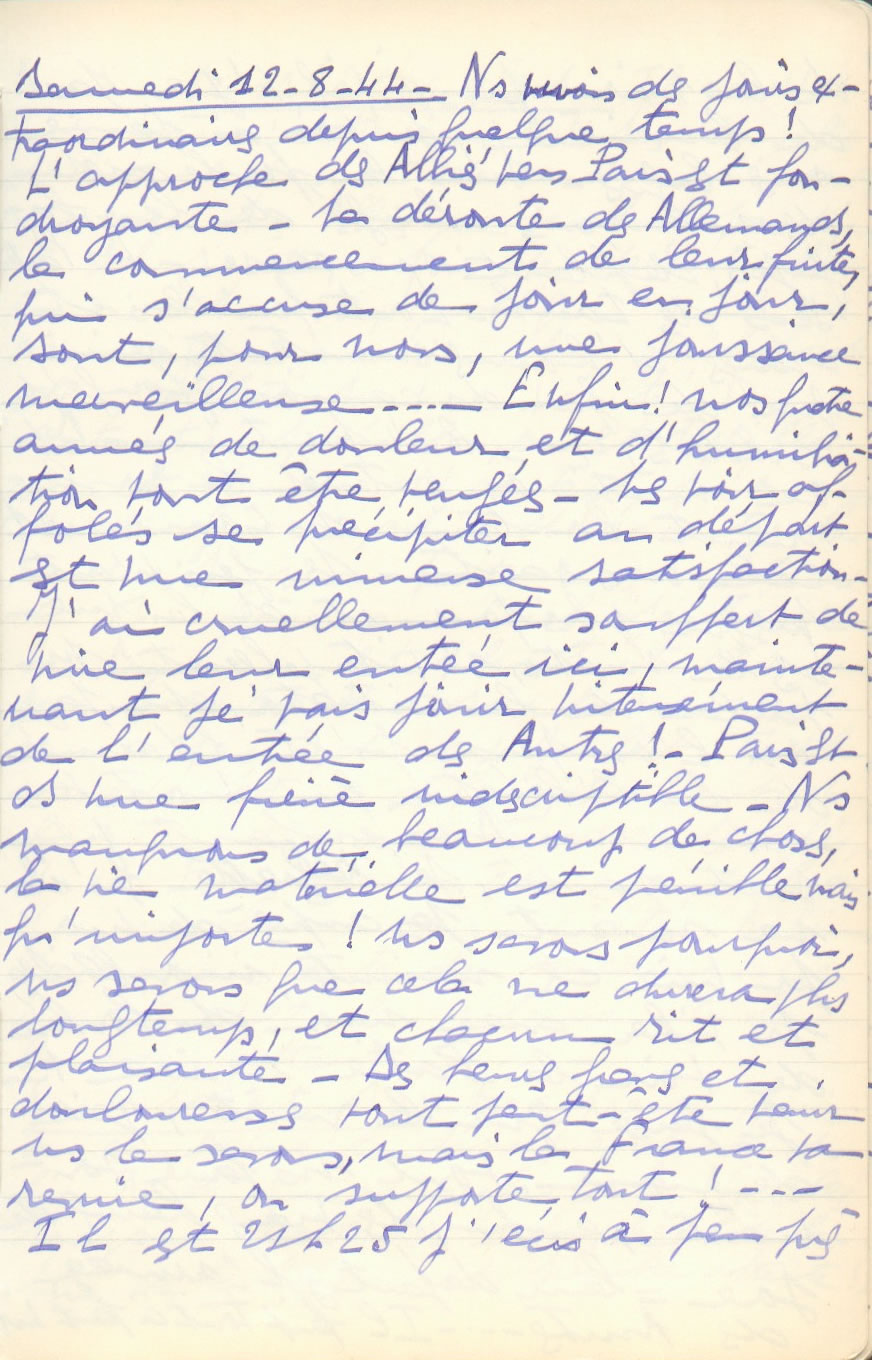 Samedi 12-8-44- Ns vivons des jours ex-
traordinaires depuis quelque temps!
L'approche des Alliés vers Paris est fou-
droyante - La déroute des Allemands,
le commencement de leur fuite,
qui s'accuse de jour en jour,
sont, pour nous, une jouissance
merveilleuse---- Enfin! nos quatre
années de douleur et d'humilia-
tion vont être vengées - Les voir af-
folés se précipiter au départ
est une immense satisfaction-
J'ai cruellement souffert de
vivre leur entrée ici, mainte-
nant je vais jouir intensément
de l'entrée des Autres!- Paris est
ds une fièvre indescriptible - Ns
manquons de beaucoup de choses,
la vie matérielle est pénible mais
qu'importe! ns savons pourquoi,
ns savons que cela ne durera plus
longtemps, et chacun rit et
plaisante - Des heures graves et
douloureuses vont peut-être venir
ns le savons, mais la France va
renaître, on supporte tout!---
Il est 21h25 j'écris à peu près